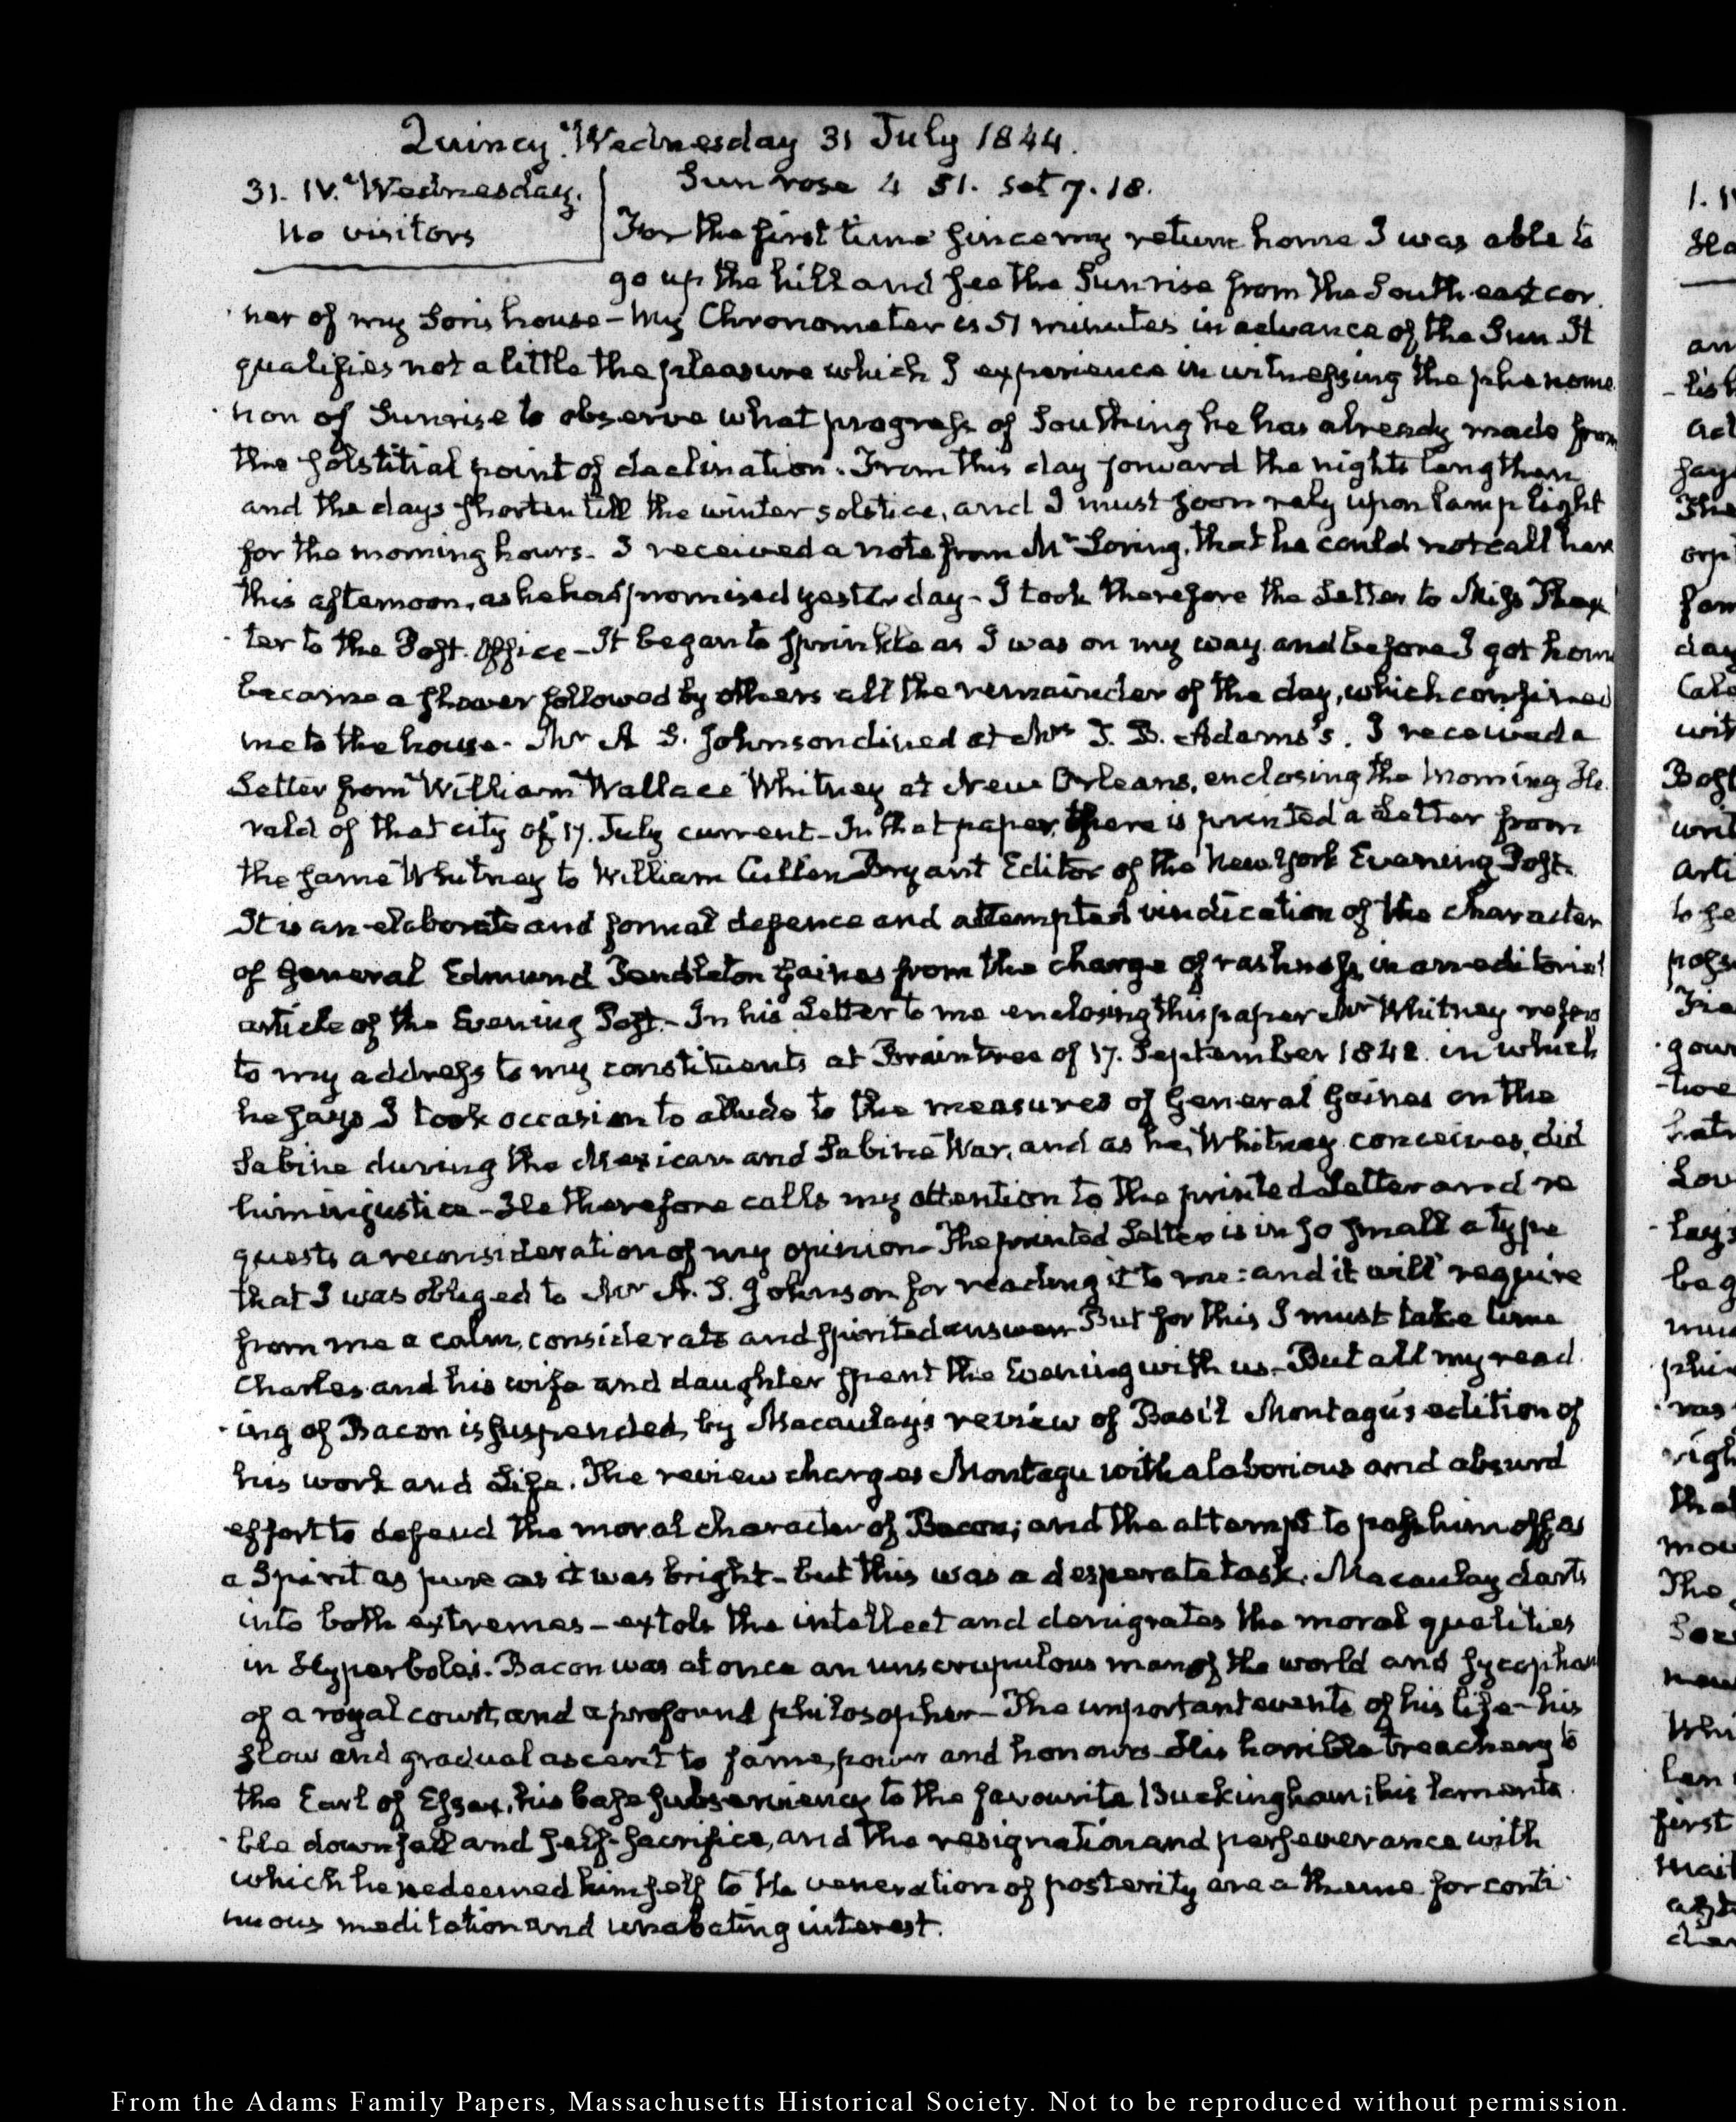 Quincy. Wednesday 31 July 1844.
31. IV. Wednesday.
No visitors
Sun rose 4 51. set 7. 18.
For the first time since my return home I was able to
go up the hill and see the Sunrise from the South east cor.
ner of my Son's house - My Chronometer is 51 minutes in advance of the Sun. It
qualifies not a little the pleasure which I experience in witnessing the phenome
non of Sunrise to observe what progress of Southing he has already made from
the solstitial point of declination. From this day forward the nights lengthen
and the days shorten till the winter solstice, and I must soon rely upon lamp light
for the morning hours. I received a note from Mr Loring, that he could not call here
this afternoon, as he had promised yesterday - I took therefore the Letter to Miss Thax
ter to the Post. Office - It began to sprinkle as I was on my way and before I got home
became a shower followed by others all the remainder of the day, which confined
me to the house. Mr A S. Johnson dined at Mrs T. B. Adams's. I received a
Letter from William Wallace Whitney at New Orleans, enclosing the Morning He.
rald of that city of 17. July current - In that paper there is printed a Letter from
the same Whitney to William Cullen Bryant Editor of the New York Evening Post.
It is an elaborate and formal defence and attempted vindication of the character
of General Edmund Pendleton Gaines from the charge of rashness, in an editorial
article of the Evening Post. - In his Letter to me enclosing this paper Mr Whitney refers
to my address to my constituents at Braintree of 17. September 1842. in which
he says I took occasion to allude to the measures of General Gaines on the
Sabine during the Mexican and Sabine War, and as he, Whitney conceives, did
him injustice - He therefore calls my attention to the printed Letter and re
quests a reconsideration of my opinion - The printed Letter is in so small a type
that I was obliged to Mr A. S. Johnson for reading it to me: and it will require
from me a calm, considerate and spirited answer - But for this I must take time
Charles and his wife and daughter spent the Evening with us - But all my read.
ing of Bacon is suspended, by Macaulay's review of Basil Montagu's edition of
his work and Life. The review charges Montagu with a laborious and absurd
effort to defend the moral character of Bacon; and the attempt to pass him off as
a Spirit as pure as it was bright - but this was a desperate task. Macaulay darts
into both extremes - extols the intellect and denigrates the moral qualities
in Hyperboles. Bacon was at once an unscrupulous man of the world and sycophant
of a royal court, and a profound philosopher - The important events of his life - his
slow and gradual ascent to fame, power and honours - His horrible treachery to
the Earl of Essex, his base subserviency to the favourite Buckingham; his lamenta.
ble downfall and self-sacrifice, and the resignation and perseverance with
which he redeemed himself to the veneration of posterity are a theme for conti.
nuous meditation and unabating interest.
From the Adams Family Papers, Massachusetts Historical Society. Not to be reproduced without permission.